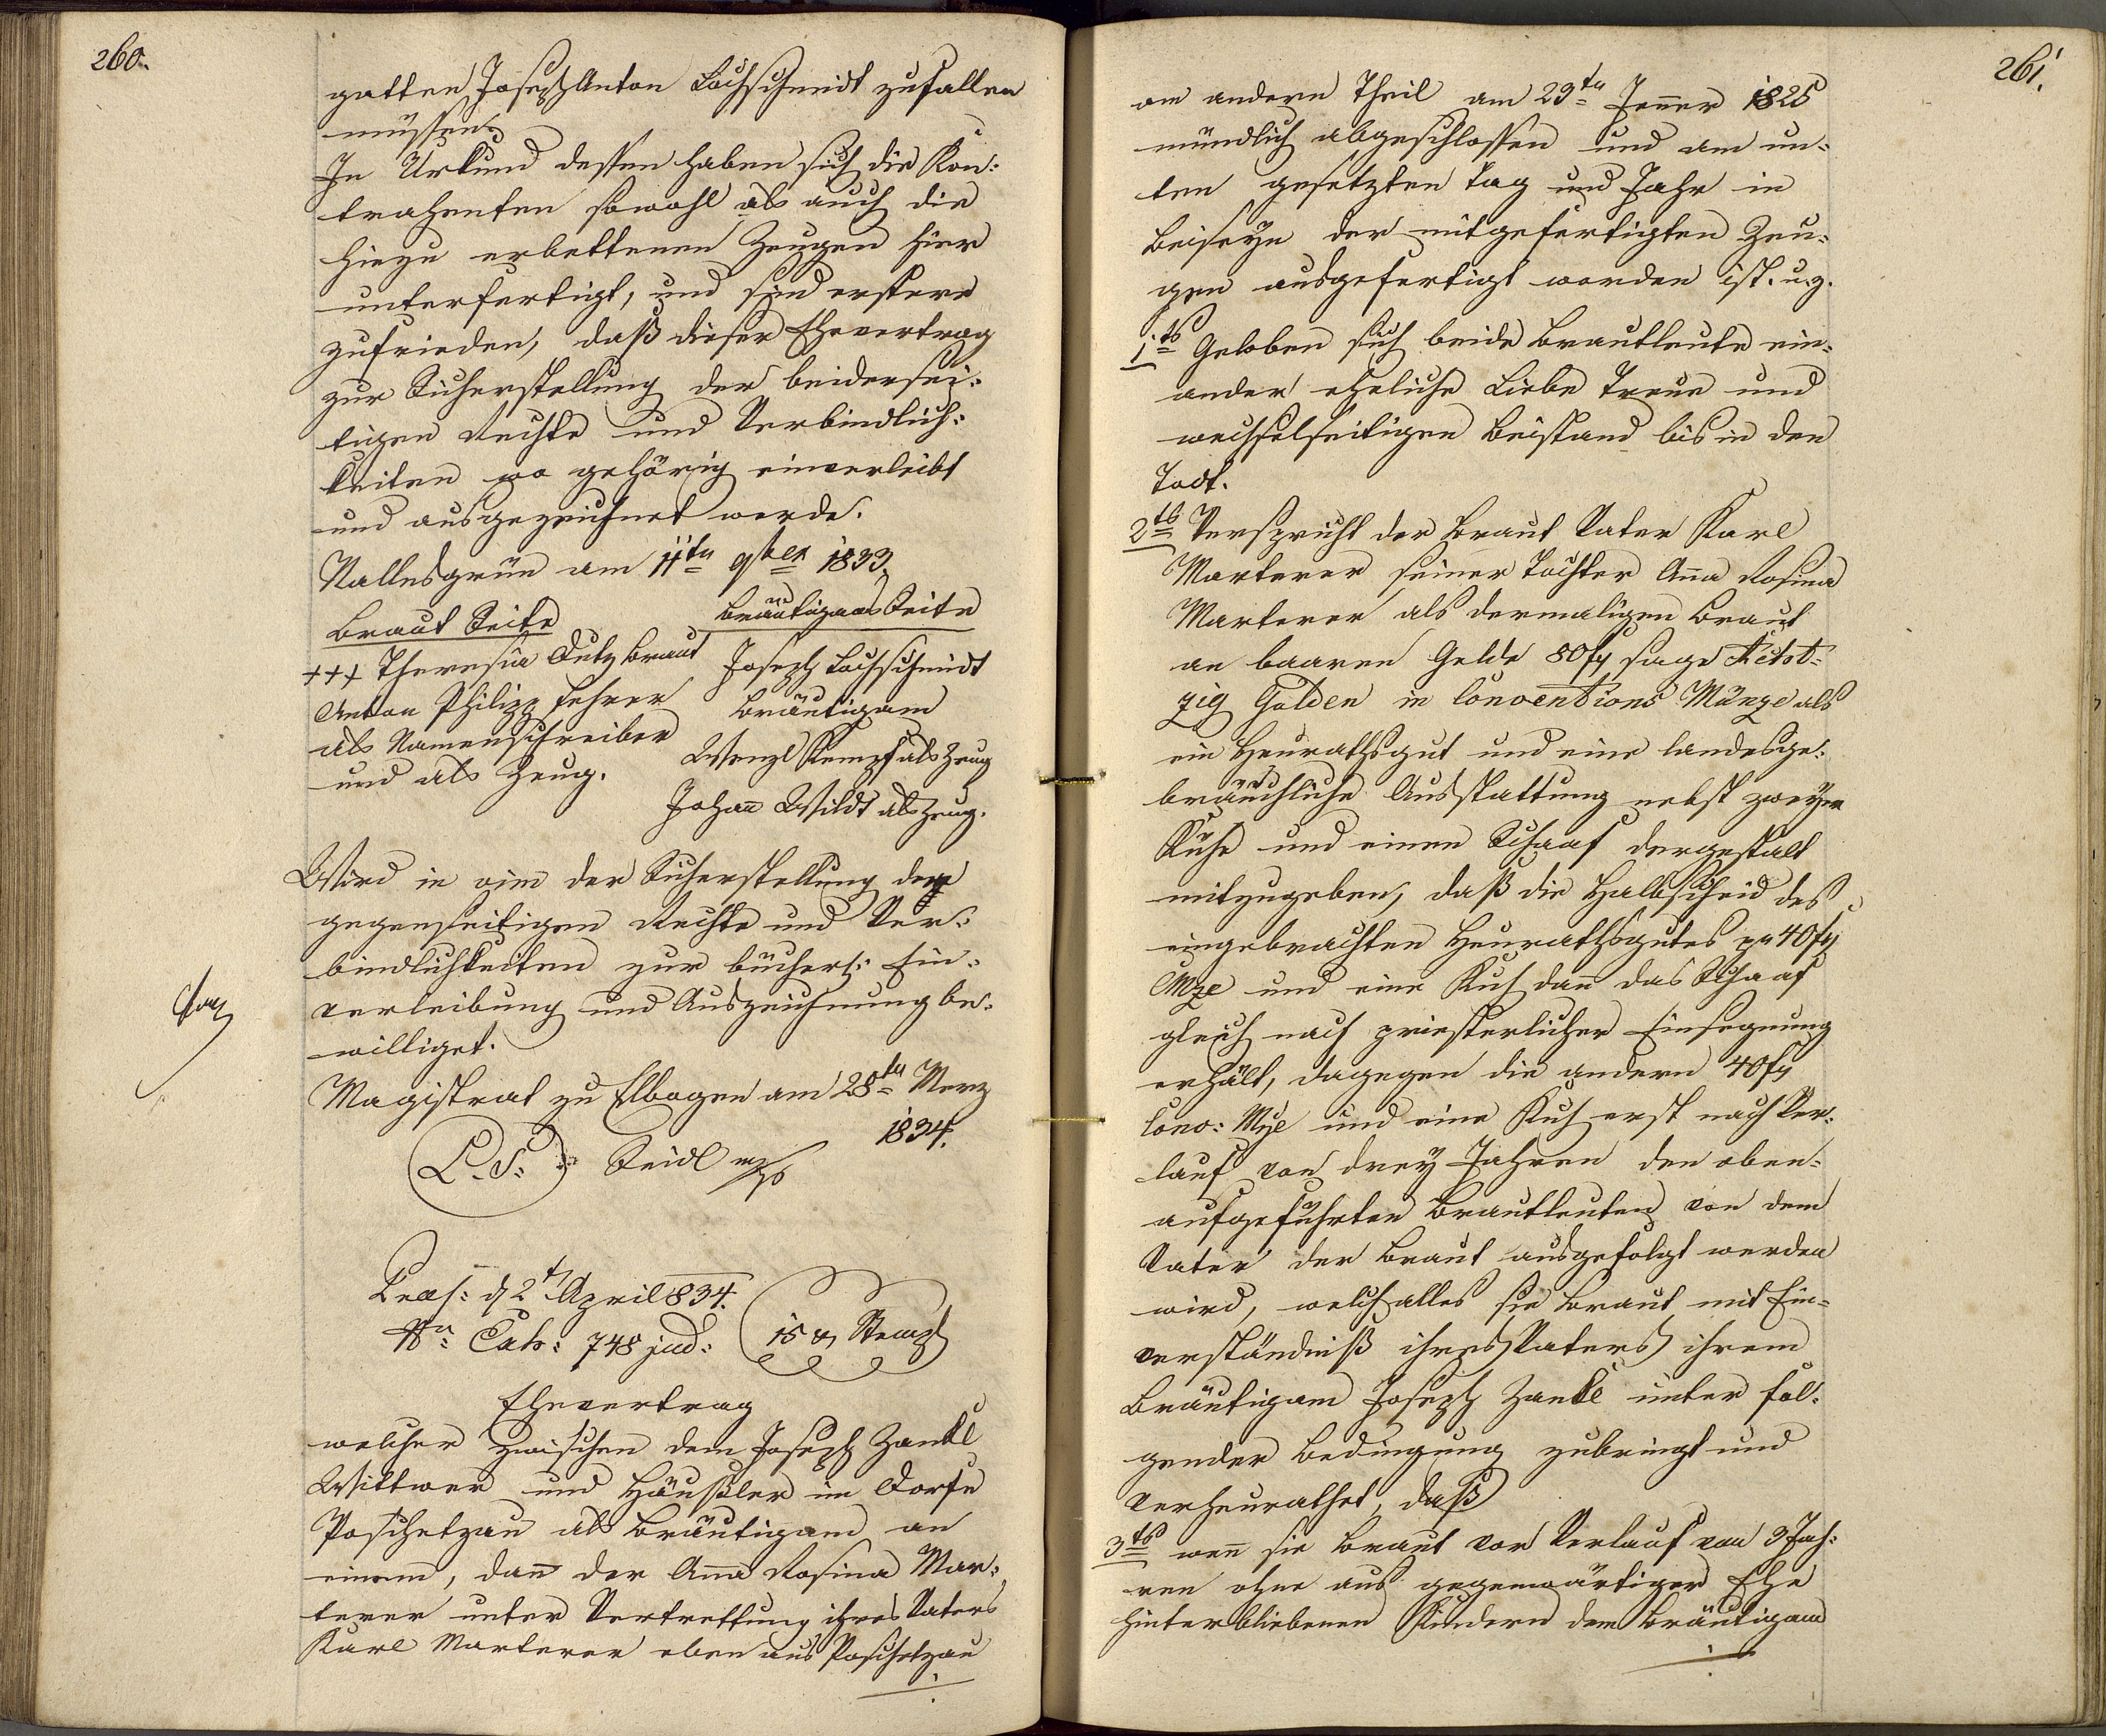 260.
gatten Joseph Anton Lochschmidt zufallen
müssen.
In Urkund dessen haben sich die Kon:
trahenten sowohl als auch die
hiezu erbettenen Zeugen hier
unterfertigt, und sind erstere
zufrieden, daß dieser Ehevertrag
zur Sicherstellung der beidersei:
tigen Rechte und Verbindlich:
keiten wo gehörig einverleibt
und ausgezeichnet werde.
Nallesgrün am 11ten 9ber 1833.
Braut Seite
Bräutigams Seite
+++ Theresia Lutz Braut
Joseph Lochschmidt
Anton Philipp Lehrer
Bräutigam
als Namenschreiber
Wenzl Kempf als Zeug
und als Zeug.
Johañ Wildt als Zeug.
Wird in vim der Sicherstellung der
gegenseitigen Rechte und Ver:
bindlichkeiten zur bücherl: Ein:
verleibung und Auszeichnung be:
williget.
Magistrat zu Elbogen am 28ten Merz
1834.
L.S. Seidl mp
Praes: d 2t April 834.
Nro Exh: 748 jud:
15 x Stempl
Ehevertrag
welcher zwischen dem Joseph Zankl
Wittwer und Häußler im Dorfe
Poschetzau als Bräutigam an
einem, dañ der Aña Rosina Mar:
terer unter Vertrettung ihres Vaters
Karl Marterer eben aus Poschetzau
261.
am andern Theil am 29ten Jenner 1825
mündlich abgeschlossen und am un:
ten gesetzten Tag und Jahr in
Beiseyn der mitgefertigten Zeu:
gen ausgefertigt worden ist. u. z.
1tens Geloben sich beide Brautleute ein:
ander eheliche Liebe Treue und
wechselseitigen Beistand bis in den
Todt.
2tens Verspricht der Braut Vater Karl
Marterer seiner Tochter Aña Rosina
Marterer als dermaligen Braut
an baaren Gelde 80 fl sage Acht:
zig Gulden in Conventions Münze als
ein Heurathsgut und eine landesge:
bräuchliche Ausstattung nebst zweyen
Kühe und einen Schaaf dergestalt
mitzugeben, daß die Halbscheid des
eingebrachten Heurathsgutes pr 40 fl
CMze und eine Kuh dañ das Schaaf
gleich nach priesterlicher Einsegnung
erhält, dagegen die andern 40 fl
Conv: Mze und eine Kuh erst nach Ver:
lauf von drey Jahren den oben:
aufgeführten Brautleuten von dem
Vater der Braut ausgefolgt werden
wird, welch alles sie Braut mit Ein:
verständniß ihres Vaters ihrem
Bräutigam Joseph Zankl unter fol:
gender Bedingung zubringt und
verheurathet, daß
3tens weñ sie Braut vor Verlauf von 3 Jah:
ren ohne aus gegenwärtiger Ehe
hinterbliebenen Kindern dem Bräutigam